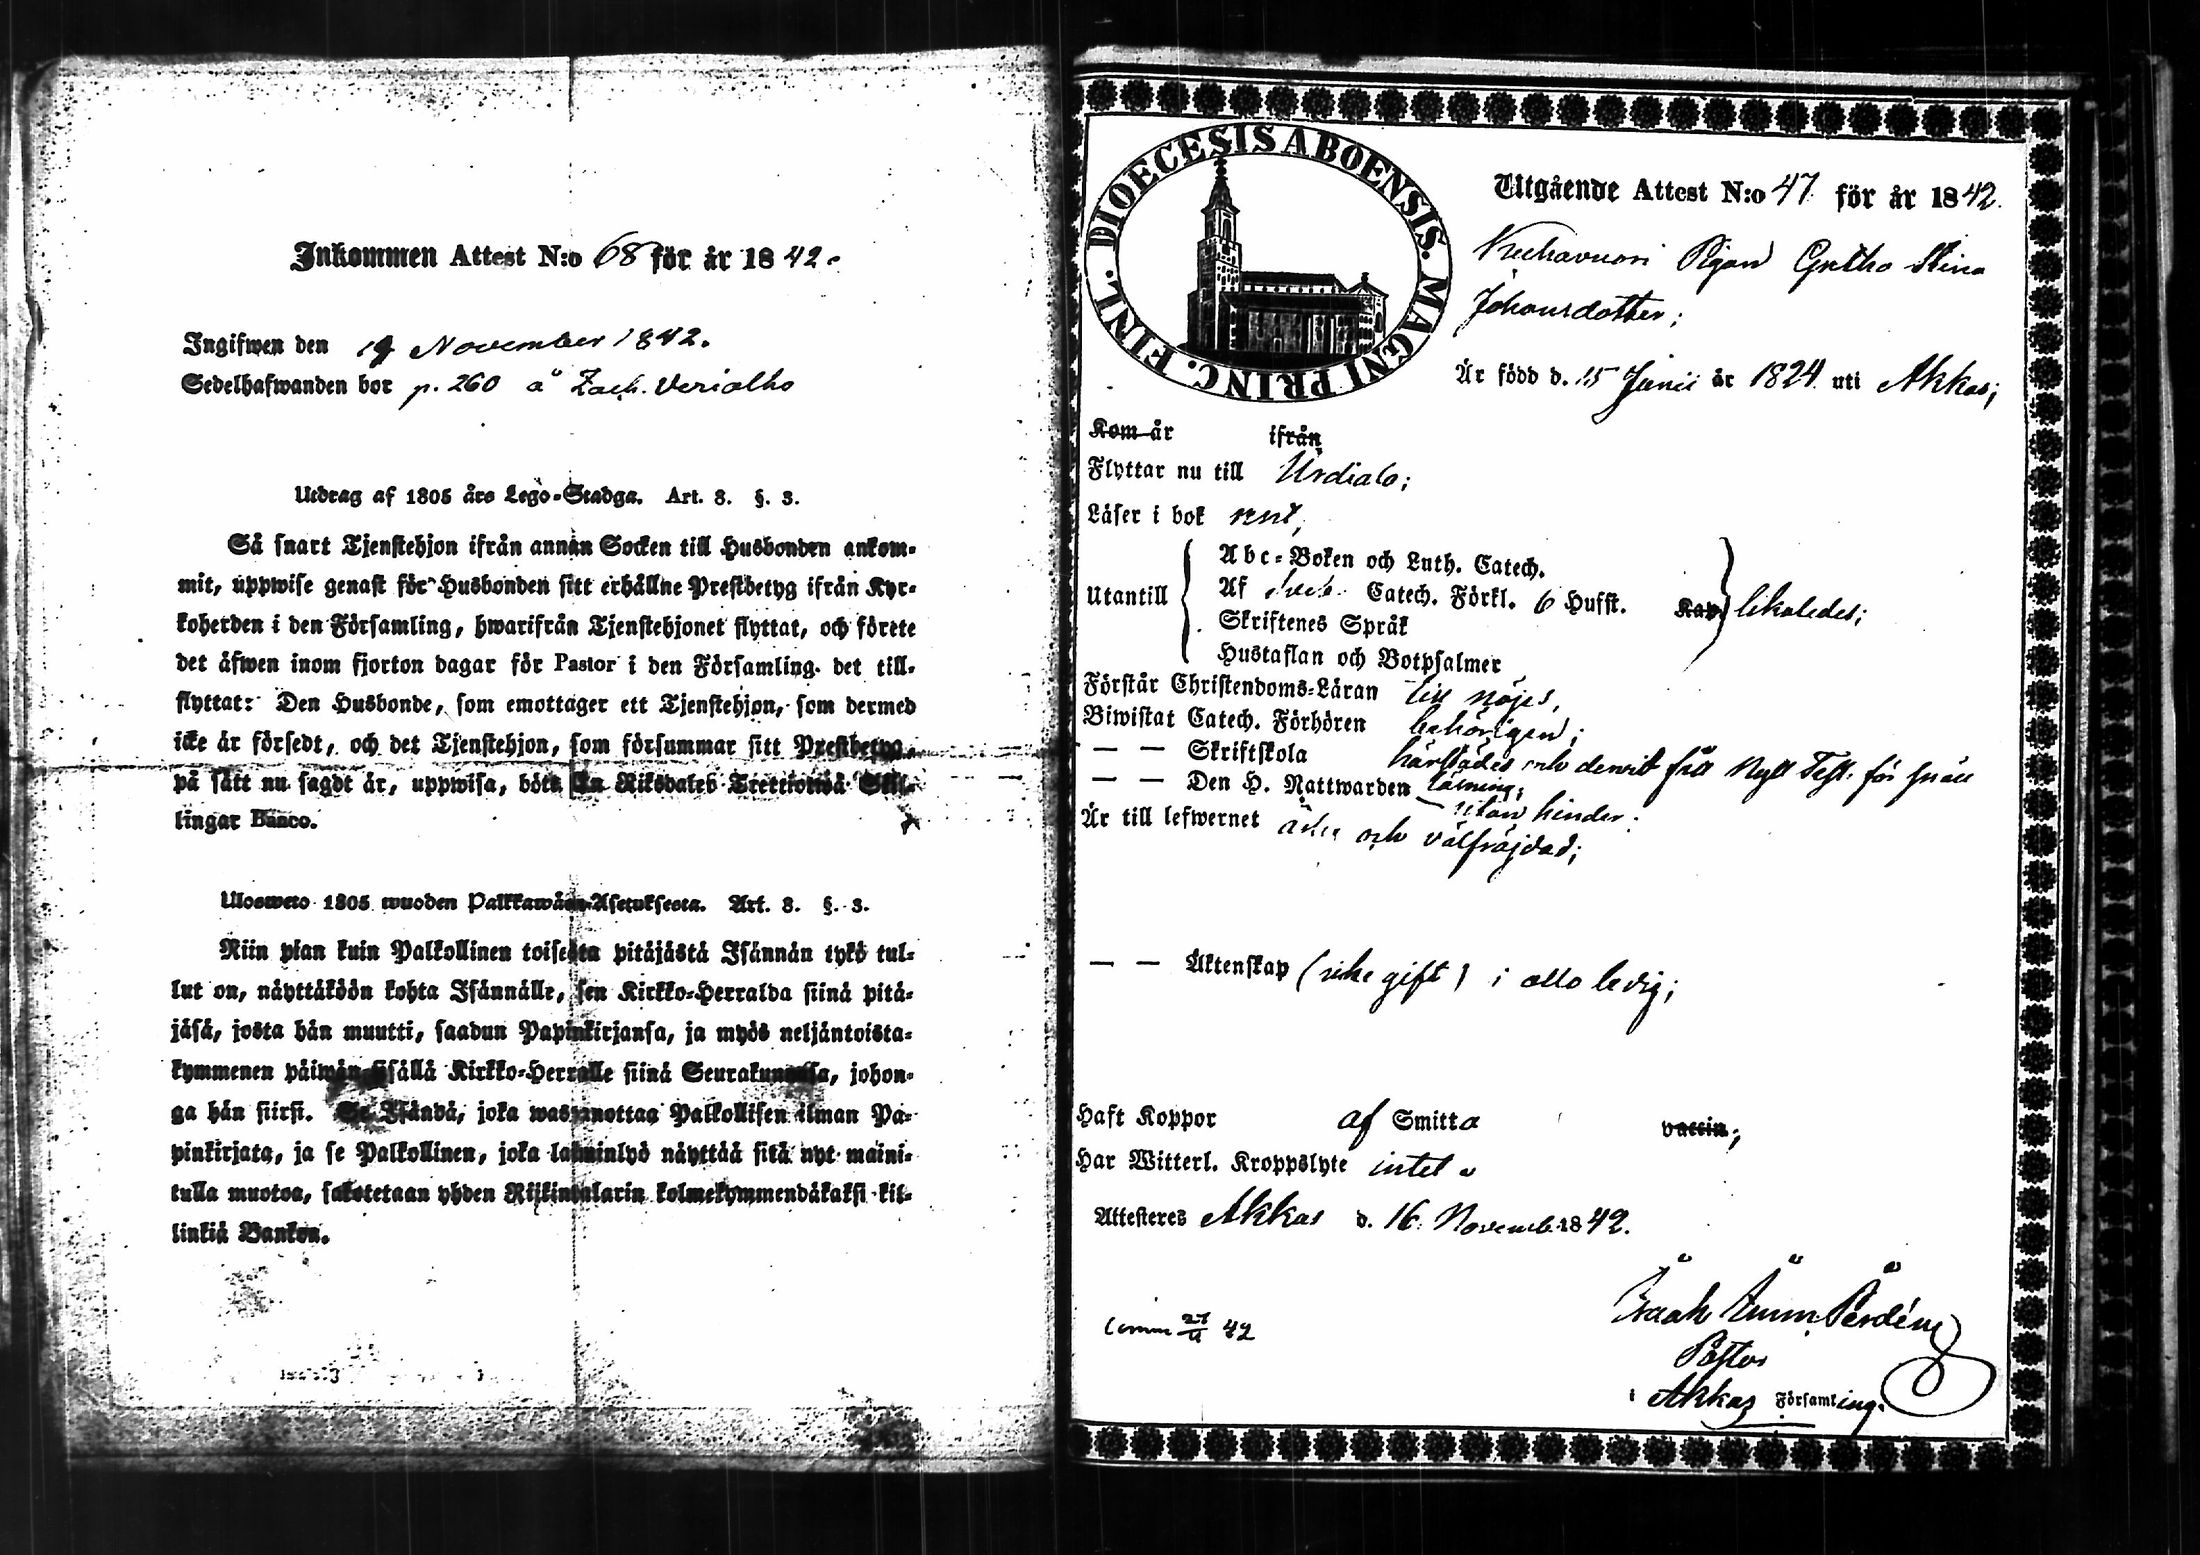 Inkommen Attest N:o 68 för år 1842.
Ingifwen den 19 November 1842.
Sedelhafwanden bor p. 260 å Zach. Verialho
Utdrag af 1805 års Lego-Stadga. Art. 8. §. 3.
Så snart Tjenstehjon ifrån annan Socken till Husbonden ankom-
mit, uppwise genast för Husbonden sitt erhållne Prestbetyg ifrån Kyr-
koherden i den Församling, hwarifrån Tjenstehjonet flyttat, och förete
det äfwen inom fjorton dagar för Pastor i den Församling det till-
flyttat: Den Husbonde, som emottager ett Tjenstehjon, som dermed
icke är försedt, och det Tjenstehjon, som försummar sitt Prestbetyg,
på sätt nu sagdt är, uppwisa, böte En Riksdaler Trettiotwå Skil-
lingar Banco.
Ulosweto 1805 wuoden Palkkawäen-Asetuksesta. Art. 8. §. 3.
Niin pian kuin Palkollinen toisesta pitäjästä Isännän tykö tul-
lut on, näyttäköön kohta Isännälle, sen Kirkko-Herralda siinä pitä-
jäsä, josta hän muutti, saadun Papinkirjansa, ja myös neljäntoista-
kymmenen päiwän sisällä Kirkko-Herralle siinä Seurakunnasa, johon-
ga hän siirsi. Se Isändä, joka wastanottaa Palkollisen ilman Pa-
pinkirjata, ja se Palkollinen, joka laiminlyö näyttää sitä nyt maini-
tulla muotoa, sakotetaan yhden Riikintalarin kolmekymmendäkaksi kil-
linkiä Bankon.
DIOECESIS ABOENSIS. MAGNI PRINC. FINL.
Utgående Attest N:o 47 för år 1842.
Kuhavuori Pigan Gretha Stina
Johansdotter;
Är född d. 15 Junii år 1824 uti Akkas;
Kom år ifrån
Flyttar nu till Urdiala;
Läser i bok rent,
Utantill
Abc-Boken och Luth. Catech.
Af Sveb. Catech. Förkl. 6 Hufst. Kap. likaledes;
Skriftenes Språk
Hustaflan och Botpsalmer
Förstår Christendoms-Läran till nöjes,
Biwistat Catech. Förhören behörigen;
— — Skriftskola härstädes och derwid fått Nytt Test. för snäll
läsning;
— — Den H. Nattwarden utan hinder;
Är till lefwernet ärlig och välfräjdad;
— — Äktenskap (icke gift) i allo ledig;
Haft Koppor af Smitta vaccin;
Har Witterl. Kroppslyte intet.
Attesteres Akkas d. 16 Novemb. 1842.
Isaak Imm.
Pastor
i Akkas Församling.
42